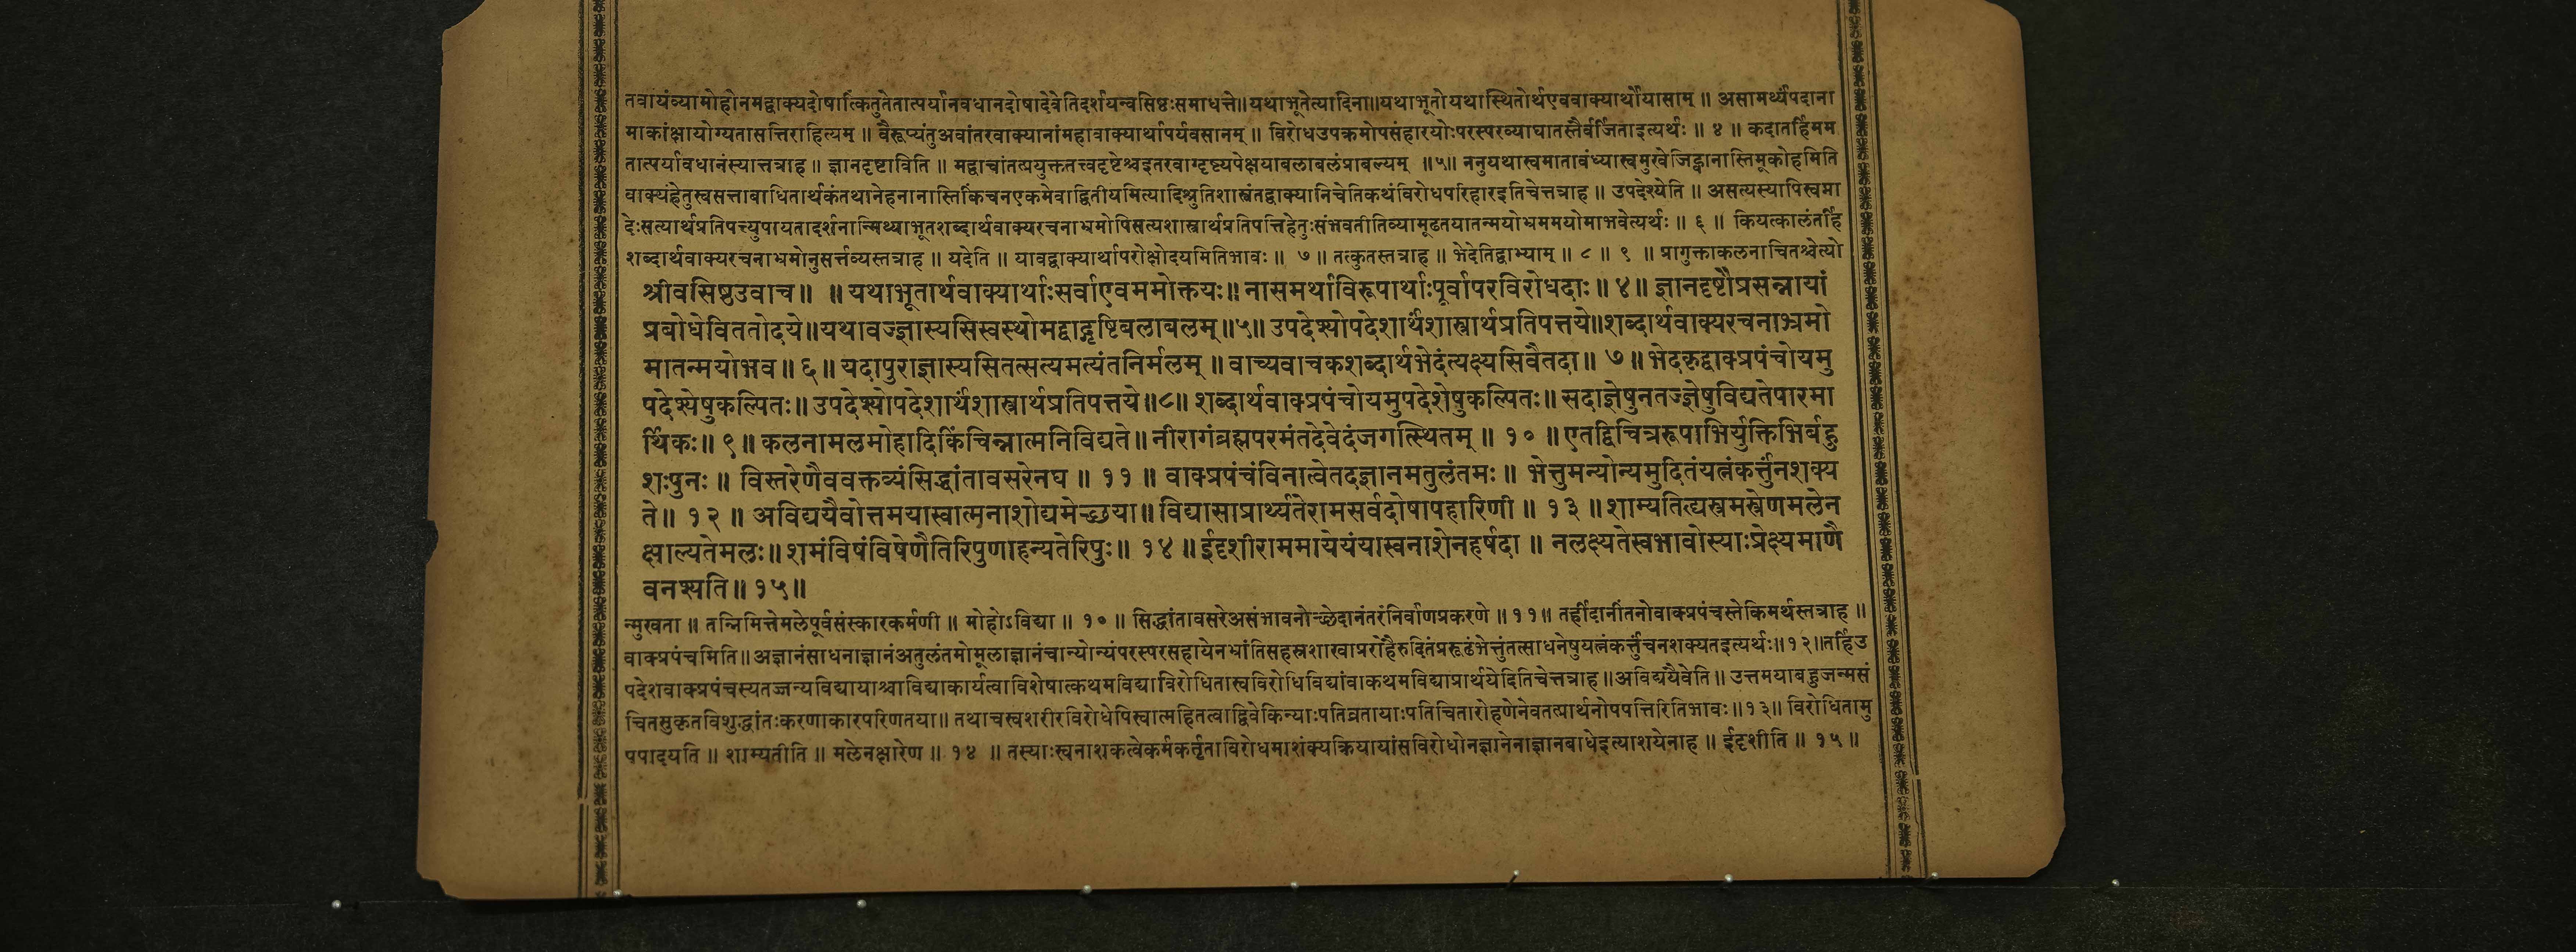 तवायंव्यामोहोनमद्वाक्यदोषात्किंतुतेतात्पर्यानवधानदोषादेवेतिदर्शयन्वसिष्ठःसमाधत्ते॥यथाभूतेत्यादिना॥यथाभूतोयथास्थितोर्थएववाक्यार्थोयासाम् ॥ असामर्थ्यंपदाना
माकांक्षायोग्यतासत्तिराहित्यम् ॥ वैरूप्यंतुअवांतरवाक्यानांमहावाक्यार्थापर्यवसानम् ॥ विरोधउपक्रमोपसंहारयोःपरस्परव्याघातस्तैर्वर्जिताइत्यर्थः ॥ ४ ॥ कदातर्हिमम
तात्पर्यावधानंस्यात्तत्राह ॥ ज्ञानदृष्टाविति ॥ मद्वाचांतत्प्रयुक्ततत्त्वदृष्टेश्चइतरवाग्दृष्ट्यपेक्षयाबलाबलंप्राबल्यम् ॥५॥ ननुयथास्वमातावंध्यास्वमुखेजिह्वानास्तिमूकोहमिति
वाक्यंहेतुस्वसत्ताबाधितार्थकंतथानेहनानास्तिकिंचनएकमेवाद्वितीयमित्यादिश्रुतिशास्त्रंतद्वाक्यानिचेतिकथंविरोधपरिहारइतिचेत्तत्राह ॥ उपदेश्येति ॥ असत्यस्यापिस्वप्ना
देःसत्यार्थप्रतिपत्त्युपायतादर्शनान्मिथ्याभूतशब्दार्थवाक्यरचनाभ्रमोपिसत्यशास्त्रार्थप्रतिपत्तिहेतुःसंभवतीतिव्यामूढतयातन्मयोभ्रममयोमाभवेत्यर्थः ॥ ६ ॥ कियत्कालंतर्हि
शब्दार्थवाक्यरचनाभ्रमोनुसर्त्तव्यस्तत्राह ॥ यदेति ॥ यावद्वाक्यार्थापरोक्षोदयमितिभावः ॥ ७ ॥ तत्कुतस्तत्राह ॥ भेदेतिद्वाभ्याम् ॥ ८ ॥ ९ ॥ प्रागुक्ताकलनाचितश्चेत्यो
श्रीवसिष्ठउवाच॥ ॥ यथाभूतार्थवाक्यार्थाःसर्वाएवममोक्तयः॥ नासमर्थाविरूपार्थाःपूर्वापरविरोधदाः॥ ४॥ ज्ञानदृष्टौप्रसन्नायां
प्रबोधेविततोदये॥यथावज्ज्ञास्यसिस्वस्थोमद्वाग्दृष्टिबलाबलम्॥५॥ उपदेश्योपदेशार्थंशास्त्रार्थप्रतिपत्तये॥शब्दार्थवाक्यरचनाभ्रमो
मातन्मयोभव॥ ६॥ यदापुराज्ञास्यसितत्सत्यमत्यंतनिर्मलम् ॥ वाच्यवाचकशब्दार्थभेदंत्यक्ष्यसिवैतदा॥ ७॥ भेदकृद्वाक्प्रपंचोयमु
पदेश्येषुकल्पितः॥ उपदेश्योपदेशार्थंशास्त्रार्थप्रतिपत्तये॥८॥ शब्दार्थवाक्प्रपंचोयमुपदेशेषुकल्पितः॥ सदाज्ञेषुनतज्ज्ञेषुविद्यतेपारमा
र्थिकः॥ ९॥ कलनामलमोहादिकिंचिन्नात्मनिविद्यते॥ नीरागंब्रह्मपरमंतदेवेदंजगत्स्थितम् ॥ १० ॥ एतद्विचित्ररूपाभिर्युक्तिभिर्बहु
शःपुनः ॥ विस्तरेणैववक्तव्यंसिद्धांतावसरेनघ ॥ ११ ॥ वाक्प्रपंचंविनात्वेतदज्ञानमतुलंतमः ॥ भेत्तुमन्योन्यमुदितंयत्नंकर्त्तुंनशक्य
ते॥ १२ ॥ अविद्ययैवोत्तमयास्वात्मनाशोद्यमेच्छया॥ विद्यासाप्रार्थ्यतेरामसर्वदोषापहारिणी ॥ १३ ॥ शाम्यतित्द्यस्त्रमस्त्रेणमलेन
क्षाल्यतेमलः॥ शमंविषंविषेणैतिरिपुणाहन्यतेरिपुः॥ १४ ॥ ईदृशीराममायेयंयास्वनाशेनहर्षदा ॥ नलक्ष्यतेस्वभावोस्याःप्रेक्ष्यमाणै
वनश्यति॥ १५॥
न्मुखता ॥ तन्निमित्तेमलेपूर्वसंस्कारकर्मणी ॥ मोहोऽविद्या ॥ १० ॥ सिद्धांतावसरेअसंभावनोच्छेदानंतरंनिर्वाणप्रकरणे ॥ ११॥ तर्हीदानींतनोवाक्प्रपंचस्तेकिमर्थस्तत्राह ॥
वाक्प्रपंचमिति॥ अज्ञानंसाधनाज्ञानंअतुलंतमोमूलाज्ञानंचान्योन्यंपरस्परसहायेनभ्रांतिसहस्रशाखाप्ररोहैरुदितंप्ररूढंभेत्तुंतत्साधनेषुयत्नंकर्त्तुंचनशक्यतइत्यर्थः॥१२॥तर्हिउ
पदेशवाक्प्रपंचस्यतज्जन्यविद्यायाश्चाविद्याकार्यत्वाविशेषात्कथमविद्याविरोधितास्वविरोधिविद्यांवाकथमविद्याप्रार्थयेदितिचेत्तत्राह॥अविद्ययैवेति॥ उत्तमयाबहुजन्मसं
चितसुकृतविशुद्धांतःकरणाकारपरिणतया॥ तथाचस्वशरीरविरोधेपिस्वात्महितत्वाद्विवेकिन्याःपतिव्रतायाःपतिचितारोहणेनेवतत्प्रार्थनोपपत्तिरितिभावः॥१३॥ विरोधितामु
पपादयति ॥ शाम्यतीति ॥ मलेनक्षारेण ॥ १४ ॥ तस्याःस्वनाशकत्वेकर्मकर्त्तृताविरोधमाशंक्यक्रियायांसविरोधोनज्ञानेनाज्ञानबाधेइत्याशयेनाह ॥ ईदृशीति ॥ १५ ॥